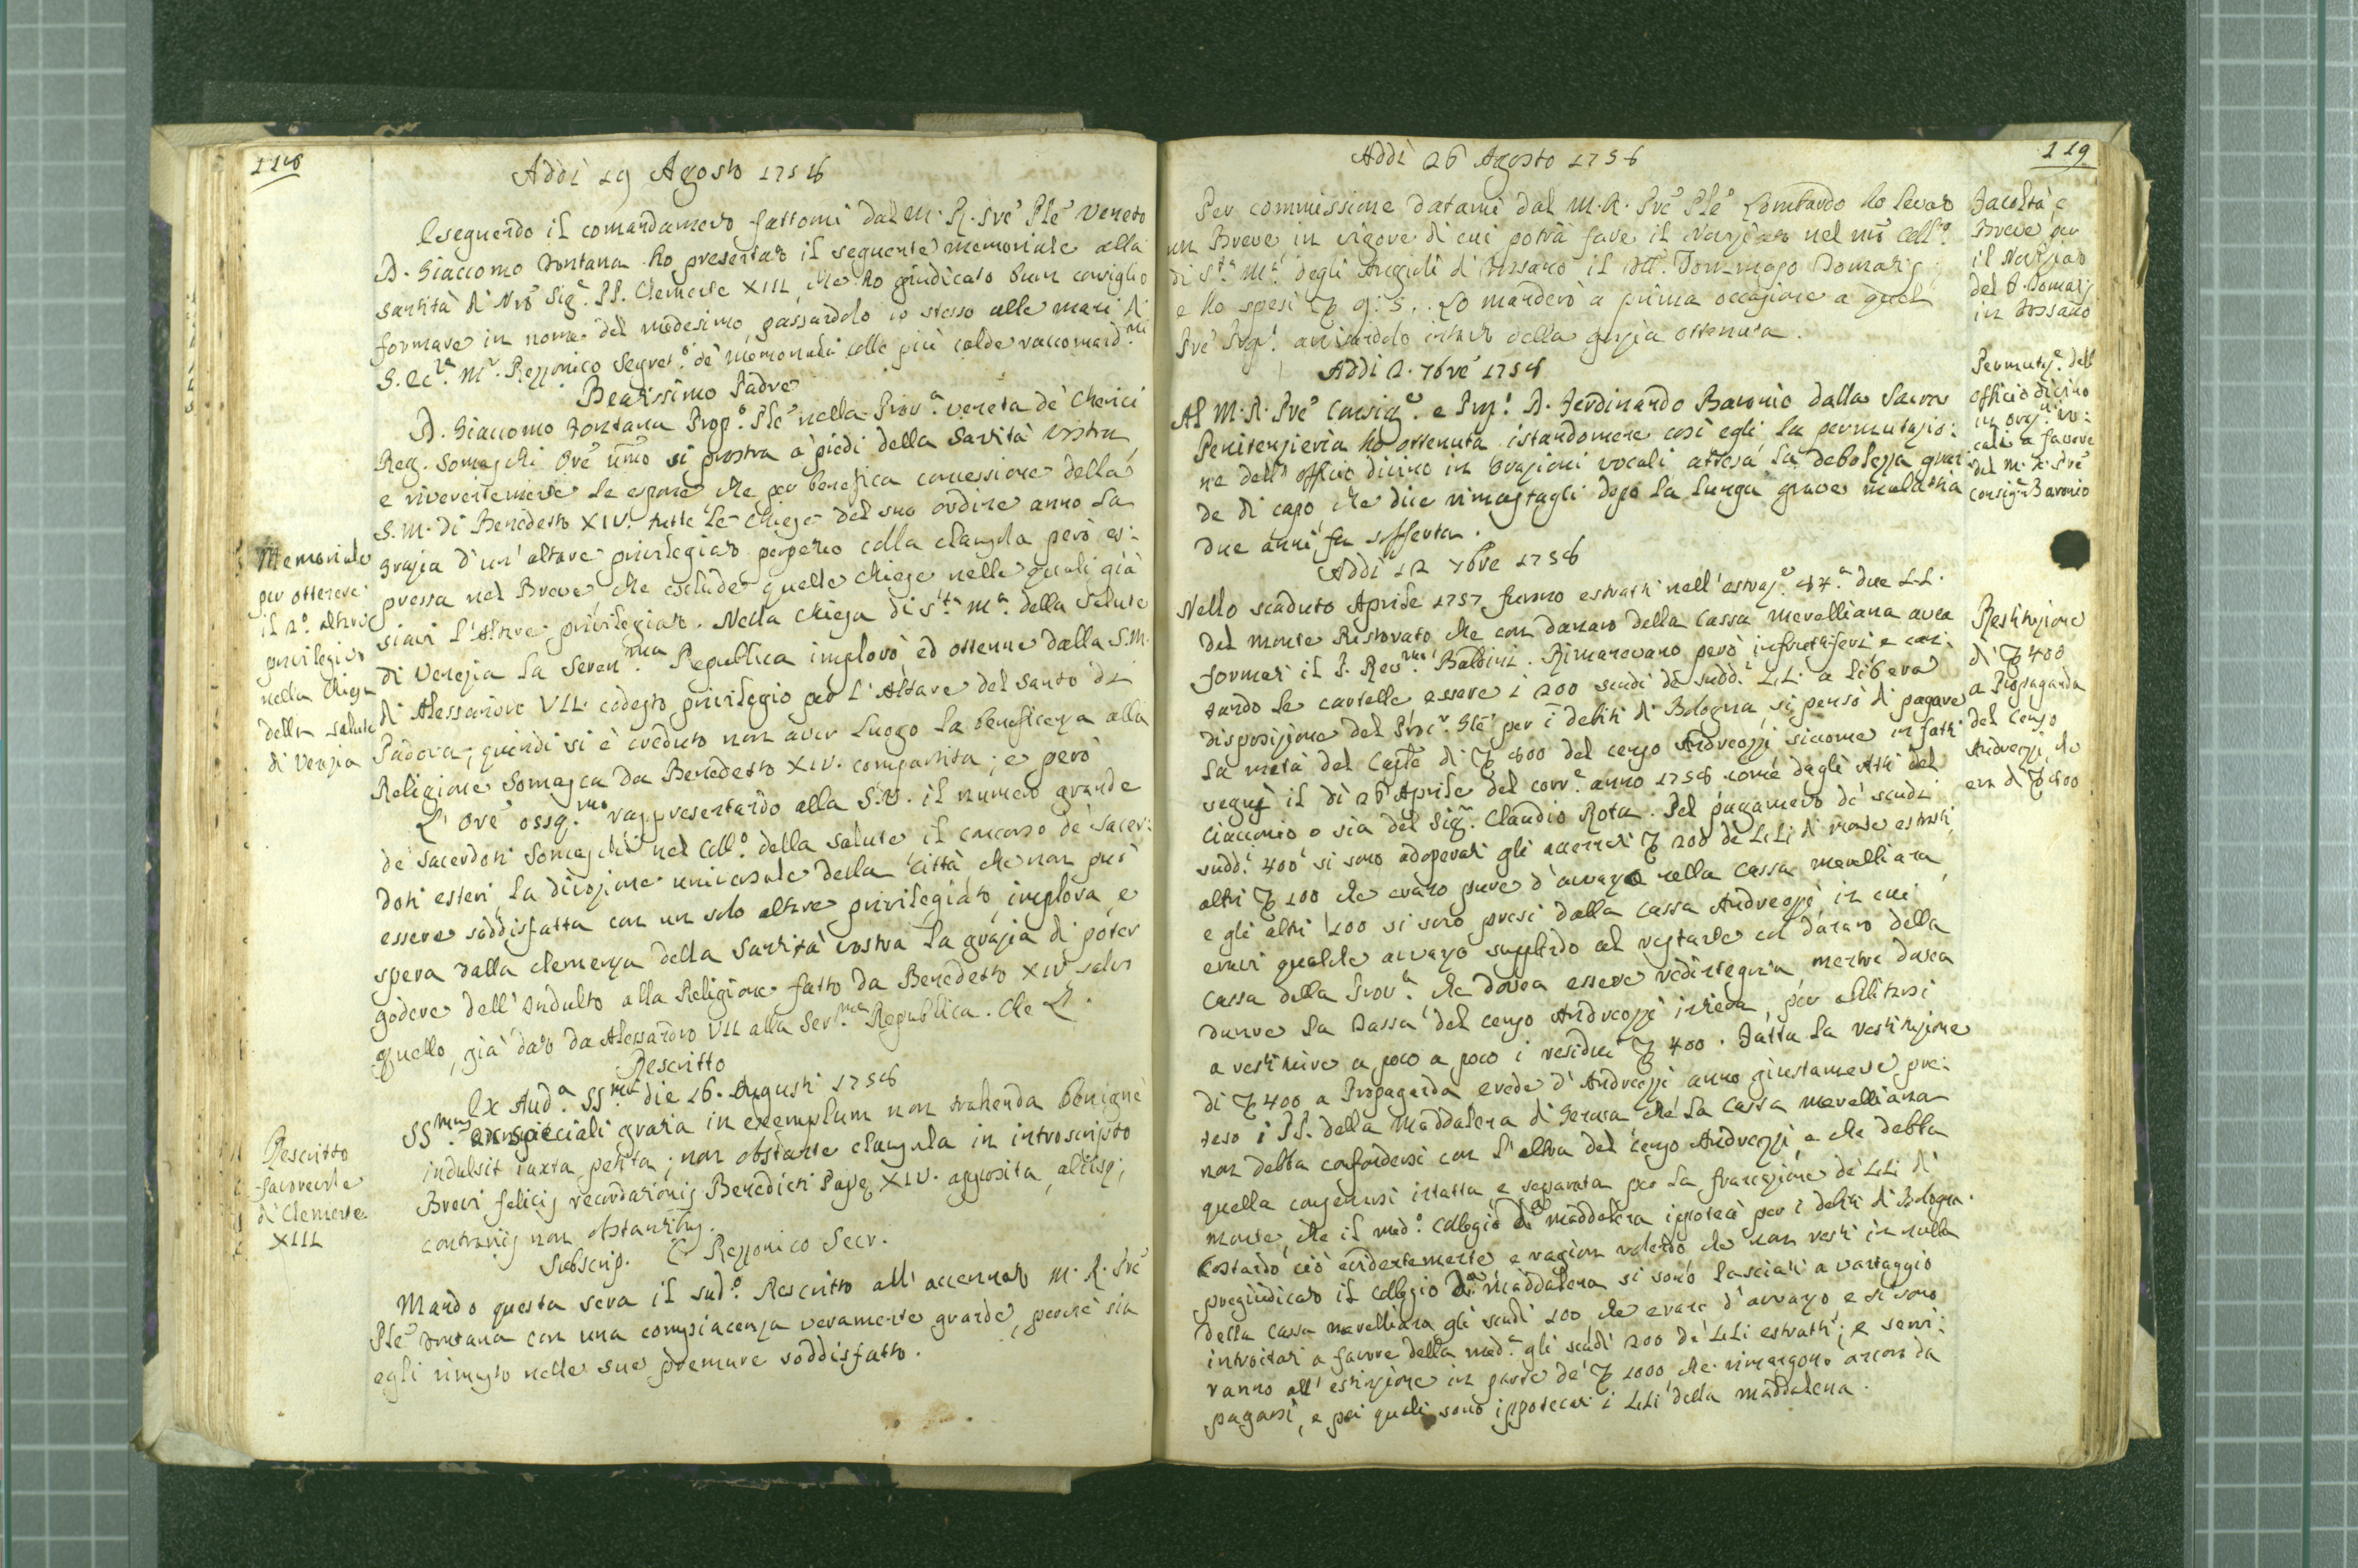 118
Addì 19 Agosto 1758
Eseguendo il comandamento fattomi dal M. R. Pre Ple Veneto
D. Giaccomo Fontana ho presentato il seguente memoriale alla
santità di Nro Sigre PP. Clemente XIII, che ho giudicato buon consiglio
formare in nome del medesimo, passandolo io stesso alle mani di
S. Ecza Mr Rezzonico Segreto de' memoriali colle più calde raccomandni
Beatissimo Padre
D. Giaccomo Fontana Prepo Ple nella Prova veneta de' Cherici
Reg. Somaschi Ore umo si prostra a' piedi della Santità vostra,
e riverentemente le espone che per benefica concessione della
S. M. di Benedetto XIV. tutte le Chiese del suo ordine anno la
grazia d'un' altare privilegiato perpetuo colla clausula però es=
pressa nel Breve che esclude quelle chiese nelle quali già
siavi l'Altare privilegiato. Nella Chiesa di Sta Ma della Salute
di Venezia la Serenma Republica implorò, ed ottenne dalla S.M.
di Alessandro VII. codesto privilegio per l'Altare del Santo di
Padova; quindi si è creduto non aver luogo la beneficenza alla
Religione Somasca da Benedetto XIV. compartita; e però
L'Ore ossqmo rappresentando alla S.V. il numero grande
de' sacerdoti Somaschi nel Collo della Salute il concorso de' sacer=
doti esteri, la divozione universale della Città, che non può
essere soddisfatta con un solo altare privilegiato, implora, e
spera dalla clemenza della Santità vostra la grazia di poter
godere dell'Indulto alla Religione fatto da Benedetto XIV salvo
quello, già dato da Alessandro VII alla Serma Republica. Che &.
Rescritto
Ex Auda SSmi die 16. Augusti 1758
SSmus ex speciali gratia in exemplum non trahenda benignè
indulsit iuxta petita; non obstante clausula in introscripto
Brevi felicis recordationis Benedicti Pape XIV. apposita, aliisq;
contrariis non obstantibus.
Subscrip. C Rezzonico Secr.
Mando questa sera il sudo Rescritto all'accennato M. R. Pre
Ple Fontana con una compiacenza veramente grande, perchè sia
egli rimasto nelle sue premure soddisfatto.
Memoriale
per ottenere
il 2o altare
privilegiato
nella Chiesa
della Salute
di Venezia
Rescritto
favorevole
di Clemente
XIII
119
Addì 26 Agosto 1758
Per commissione datami dal M. R. Pre Ple Lombardo ho levato
un Breve in vigore di cui potrà fare il Noviziato nel nro Collo
di Sta Ma degli Angioli di Fossano il Tommaso Domatis
e ho spesi 9:5. Lo manderò a prima occasione a quel
Pre avisandolo intanto della grazia ottenuta.
Addì 2. 7bre 1758
Al M. R. Pre Consigre e D. Ferdinando Baronio dalla Sacra
Penitenzieria ho ottenuta istandomene così egli la permutazio=
ne dell'officio divino in orazioni vocali attesa la debolezza gran=
de di capo, che dice rimastagli dopo la lunga grave malattia
due anni fa sofferta.
Addì 12 7bre 1758
Nello scaduto Aprile 1757 furono estratti nell'estraze 47.a due LL.
del monte Ristorato che con danaro della Cassa merelliana avea
formati il P. Revmo Baldini. Rimanevano però infruttiferi e con=
tando le cartelle essere i 200 scudi de' suddi LL. a libera
disposizione del Procr Gle per i debiti di Bologna, si pensò di pagare
la metà del Capte di 800 del censo Andreozzi siccome in fatti
seguì il dì 26 Aprile del corre anno 1758 come dagli Atti del
Ciacconio o sia del Sigr Claudio Rota. Pel pagamento de' scudi
suddi 400 si sono adoperati gli accennati 200 de' LL. di monte estratti,
altri 100 che erano pure d'avanzo nella Cassa merelliana,
e gli altri 100 si sono presi dalla Cassa Andreozzi, in cui
eravi qualche avanzo supplendo al restante col danaro della
Cassa della Prova che dovea essere redintegrata, mentre dovea
durare la Tassa del censo Andreozzi intiera, per abilitarsi
a restituire a poco a poco i residui 400. Fatta la restituzione
di 400 a Propaganda erede d'Andreozzi anno giustamente pre=
teso i PP. della Maddalena di Genova che la Cassa merelliana
non debba confondersi con l'altra del censo Andreozzi e che debba
quella conservarsi intatta e separata per la francazione de' LL. di
monte, che il medo Collegio di Maddalena ipotecò per i debiti di Bologna.
Costando ciò evidentemente e ragion volendo che non resti in nulla
pregiudicato il Collegio di Maddalena si sono lasciati a vantaggio
della Cassa merelliana gli scudi 100 che erano d'avanzo e si sono
introitati a favore della meda gli scudi 200 de' LL. estratti; e servi=
ranno all'estinzione in parte de' 1000 che rimangono ancora da
pagarsi, e pei quali sono ippotecati i LL. della Maddalena.
Facoltà e
Breve per
il Noviziato
del P. Domatis
in Fossano
Permutaze dell'
officio divino
in orazni vo=
cali a favore
del M. R. Pre
Consigre Baronio
Restituzione
di 400
a Propaganda
del Censo
Andreozzi che
era di 800